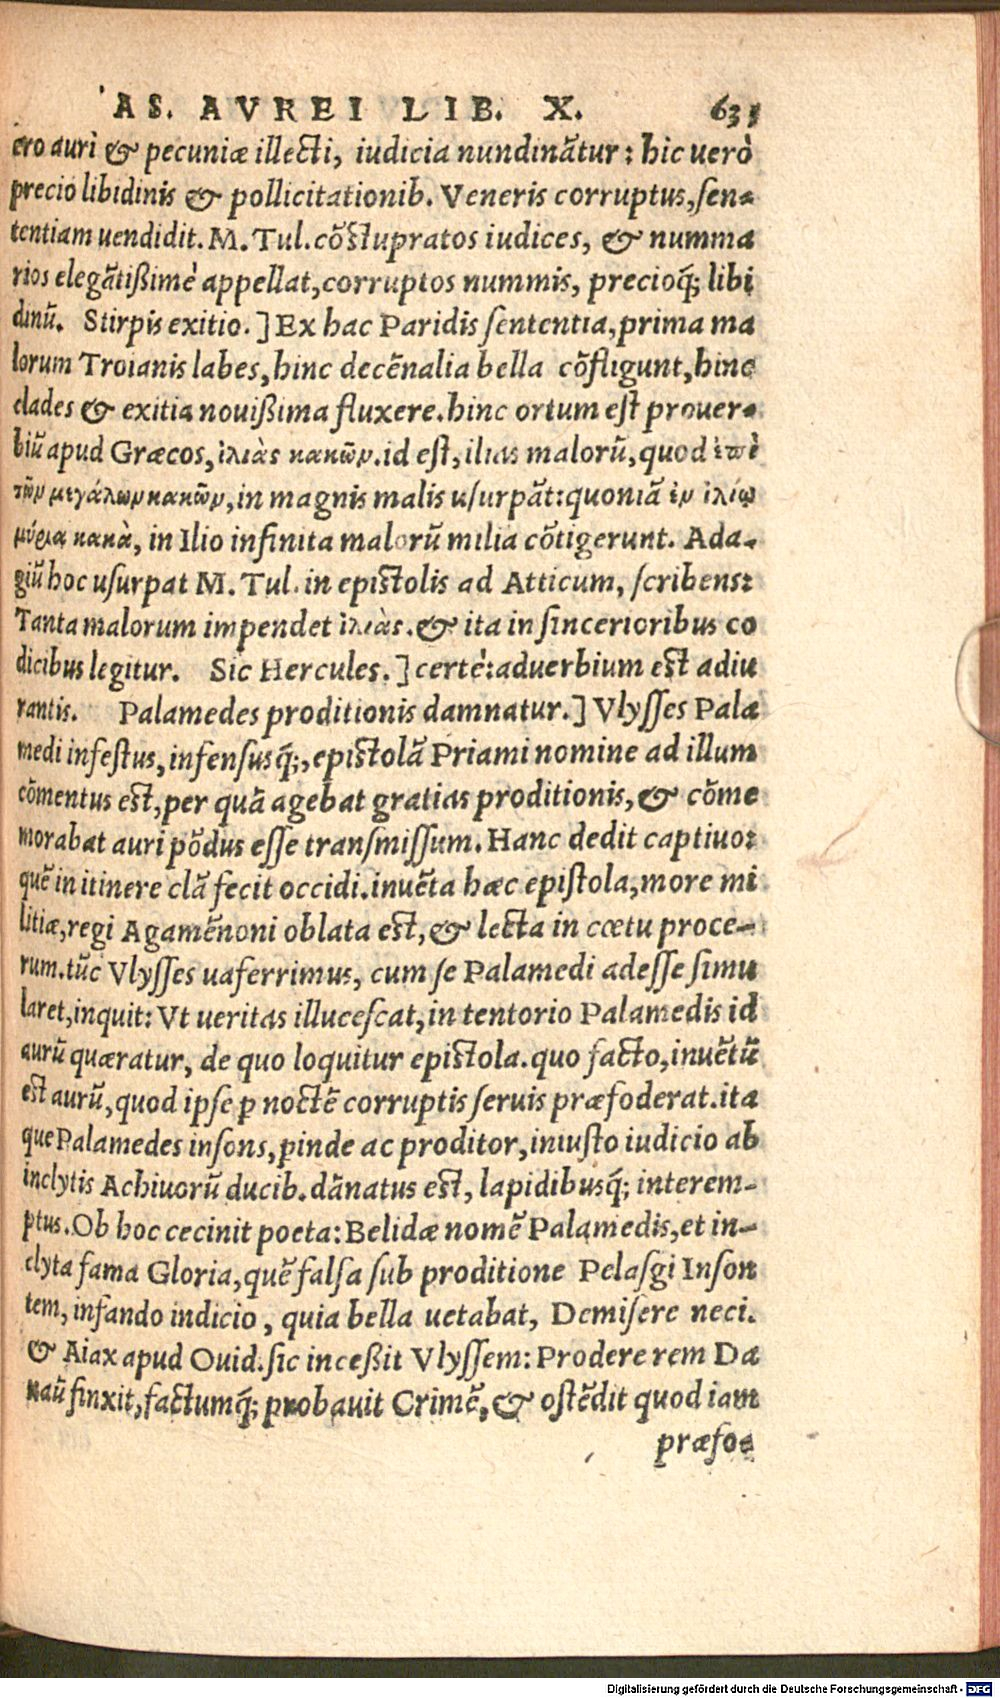 AS. AVREI LIB. X. 631
ero auri & pecuniæ illecti, iudicia nundinãtur: hic uerò
precio libidinis & pollicitationib. Veneris corruptus, sen-
tentiam uendidit. M. Tul. cõstupratos iudices, & numma
rios elegãtißimè appellat, corruptos nummis, precioq́; libi
dinũ. Stirpis exitio. ] Ex hac Paridis sententia, prima ma
lorum Troianis labes, hinc decẽnalia bella cõfligunt, hinc
clades & exitia nouißima fluxere. hinc ortum est prouer-
biũ apud Græcos, ἰλιὰς κακῶν. id est, ilias malorũ, quod ἐπὶ
τῶν μεγάλων κακῶν, in magnis malis usurpãt: quoniã ἐν ἰλίῳ
μύρια κακὰ, in Ilio infinita malorũ milia cõtigerunt. Ada-
giũ hoc usurpat M. Tul. in epistolis ad Atticum, scribens:
Tanta malorum impendet ἰλιὰς. & ita in sincerioribus co
dicibus legitur. Sic Hercules. ] certè: aduerbium est adiu
rantis. Palamedes proditionis damnatur. ] Vlysses Pala
medi infestus, infensusq́;, epistolã Priami nomine ad illum
cõmentus est, per quã agebat gratias proditionis, & cõme
morabat auri põdus esse transmissum. Hanc dedit captiuo:
quẽ in itinere clã fecit occidi. inuẽta hæc epistola, more mi
litiæ, regi Agamẽnoni oblata est, & lecta in cœtu proce-
rum. tũc Vlysses uaferrimus, cum se Palamedi adesse simu
laret, inquit: Vt ueritas illucescat, in tentorio Palamedis id
aurũ quæratur, de quo loquitur epistola. quo facto, inuẽtũ
est aurũ, quod ipse p noctẽ corruptis seruis præfoderat. ita
que Palamedes insons, pinde ac proditor, iniusto iudicio ab
inclytis Achiuorũ ducib. dãnatus est, lapidibusq́; interem-
ptus. Ob hoc cecinit poeta: Belidæ nomẽ Palamedis, et in-
clyta fama Gloria, quẽ falsa sub proditione Pelasgi Inson
tem, infando indicio, quia bella uetabat, Demisere neci.
& Aiax apud Ouid. sic inceßit Vlyssem: Prodere rem Da
naũ finxit, factumq́; probauit Crimẽ, & ostẽdit quod iam
præfo-
Digitalisierung gefördert durch die Deutsche Forschungsgemeinschaft - DFG